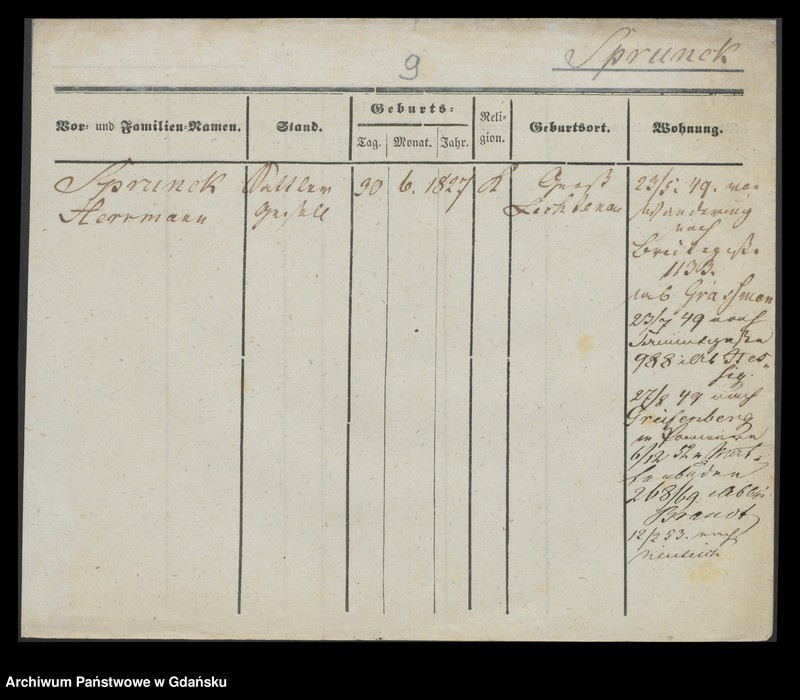 9
Sprunck
Vor- und Familien-Namen.
Stand.
Geburts-
Tag.
Monat.
Jahr.
Reli-
gion.
Geburtsort.
Wohnung.
Sprunck
Herrmann
Sattler
Gesell
30
6.
1827
K
Groß
Lichtenau
23/5. 49. von
Wanderung
nach
Breitegasse
1133.
Graszmann
23/7 49 nach
988
27/8 49 nach
Greifenberg
in Pommern
6/12 52
268/69
Brandt
12/2 53. nach
Neuteich
Archiwum Państwowe w Gdańsku